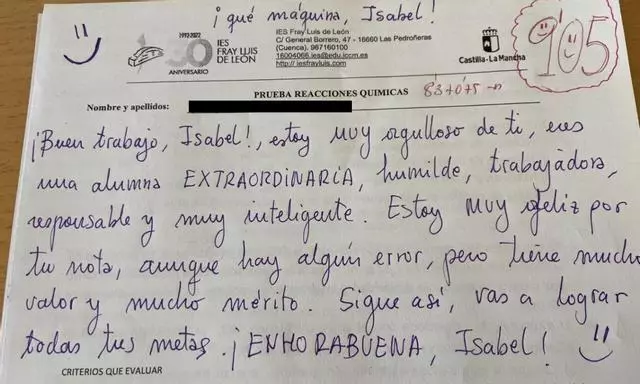 ¡qué máquina, Isabel!
1972-2022
50
ANIVERSARIO
IES
FRAY LUIS
DE LEÓN
IES Fray Luis de León
C/ General Borrero, 47 - 16660 Las Pedroñeras
(Cuenca). 967160100
16004066.ies@edu.jccm.es
http://iesfrayluis.com
Castilla-La Mancha
9'05
PRUEBA REACCIONES QUIMICAS 8'3+0'75
Nombre y apellidos:
¡Buen trabajo, Isabel!, estoy MUY orgulloso de ti, eres
una alumna EXTRAORDINARIA, humilde, trabajadora,
responsable y muy inteligente. Estoy MUY feliz por
tu nota, aunque hay algún error, pero tiene mucho
valor y mucho mérito. Sigue así, vas a lograr
todas tus metas. ¡ENHORABUENA, Isabel!
CRITERIOS QUE EVALUAR